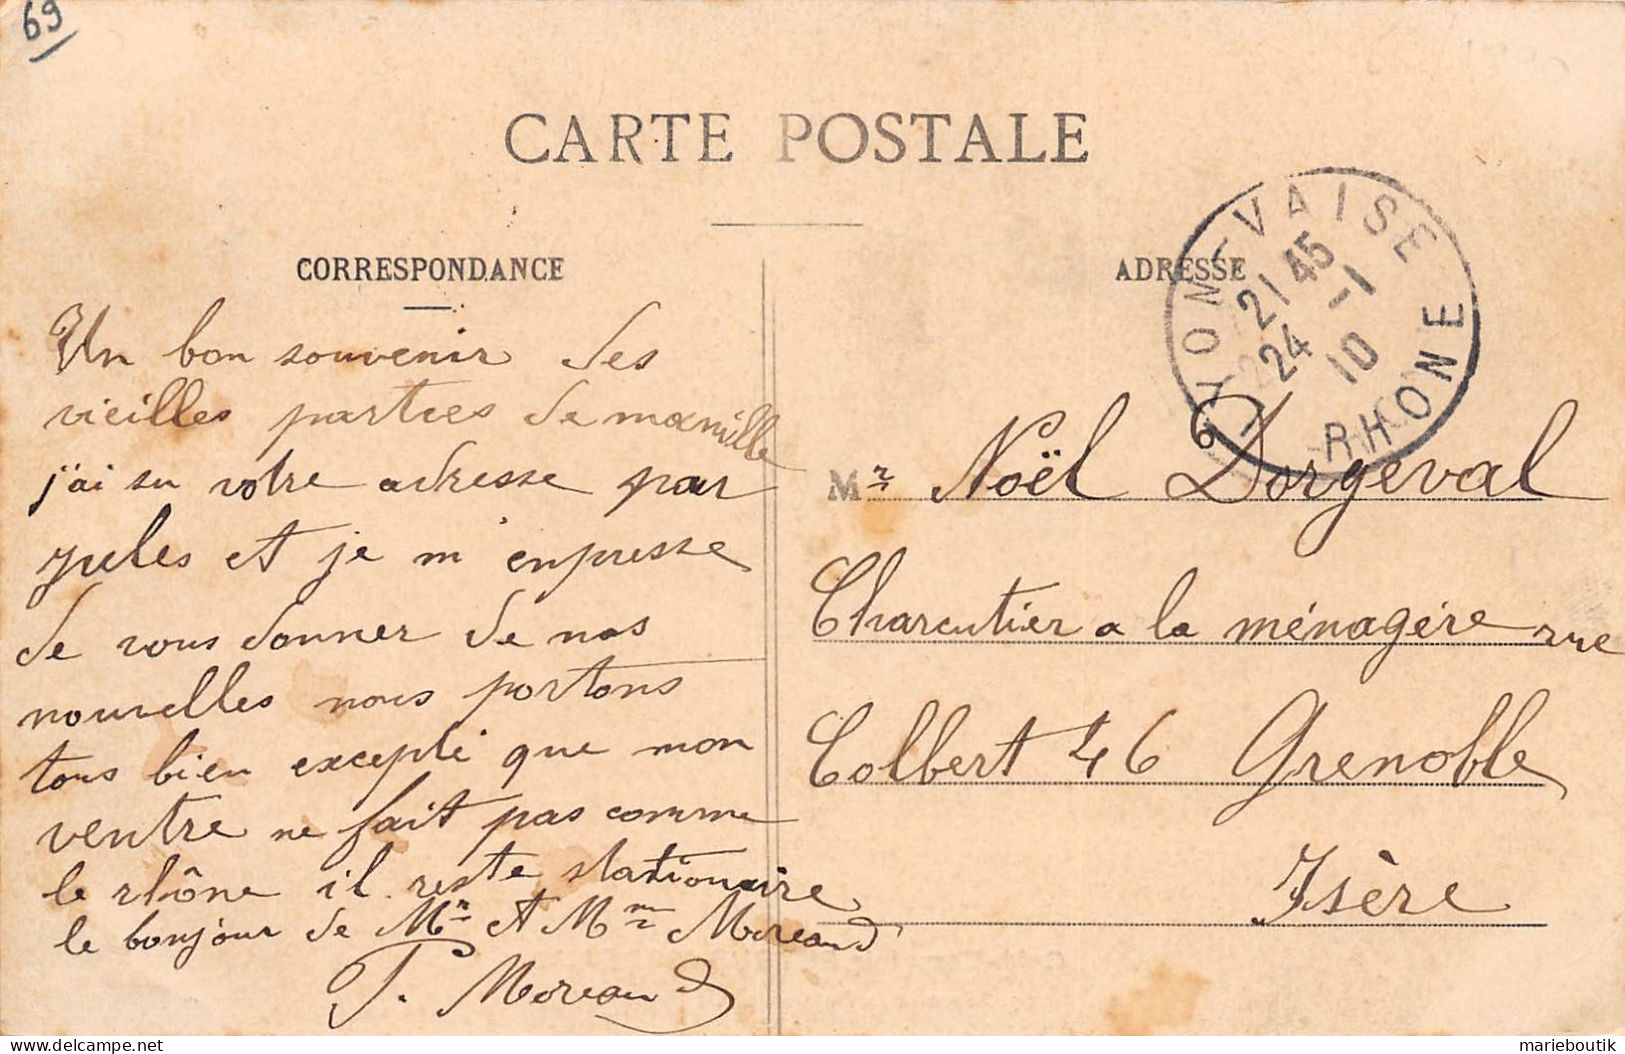 69
CARTE POSTALE
CORRESPONDANCE
ADRESSE
LYON-VAISE
21 45
24 -1
10
RHONE
Un bon souvenir des
vieilles parties de manille
j'ai su votre adresse par
jules et je m'enpresse
de vous donner de nos
nouvelles nous portons
tous bien excepté que mon
ventre ne fait pas comme
le rhône il reste stationaire
le bonjour de Mr et Mme Moreaud
P. Moreaud
Mr Noël Dorgeval
Charcutier a la ménagére rue
Colbert 46 Grenoble
Isère
marieboutik
delcampe.net